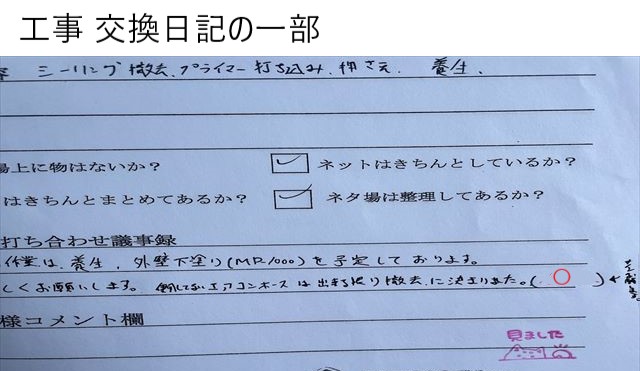 工事 交換日記の一部
シーリング撤去、プライマー打ち込み、押さえ、養生、
場上に物はないか?
ネットはきちんとしているか?
はきちんとまとめてあるか?
ネタ場は整理してあるか?
打ち合わせ議事録
作業は、養生、外壁下塗り(MR1000)を予定しております。
しくお願いします。エアコンホースは出来る限り撤去に決まりました。(○)
様コメント欄
見ました